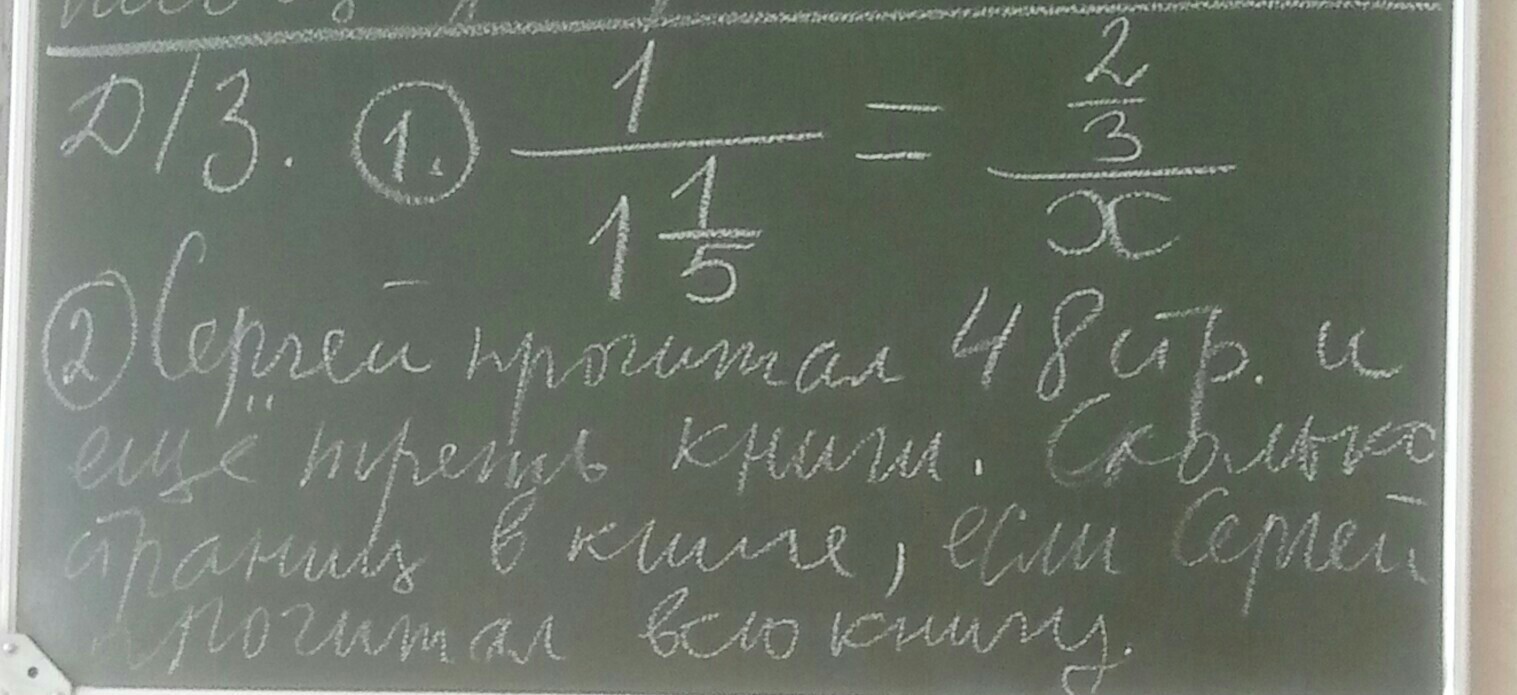 Д/З. 1. 1 / 1 1/5 = 2/3 / x
2 Сергей прочитал 48 стр. и
еще треть книги. Сколько
страниц в книге, если Сергей
прочитал всю книгу.